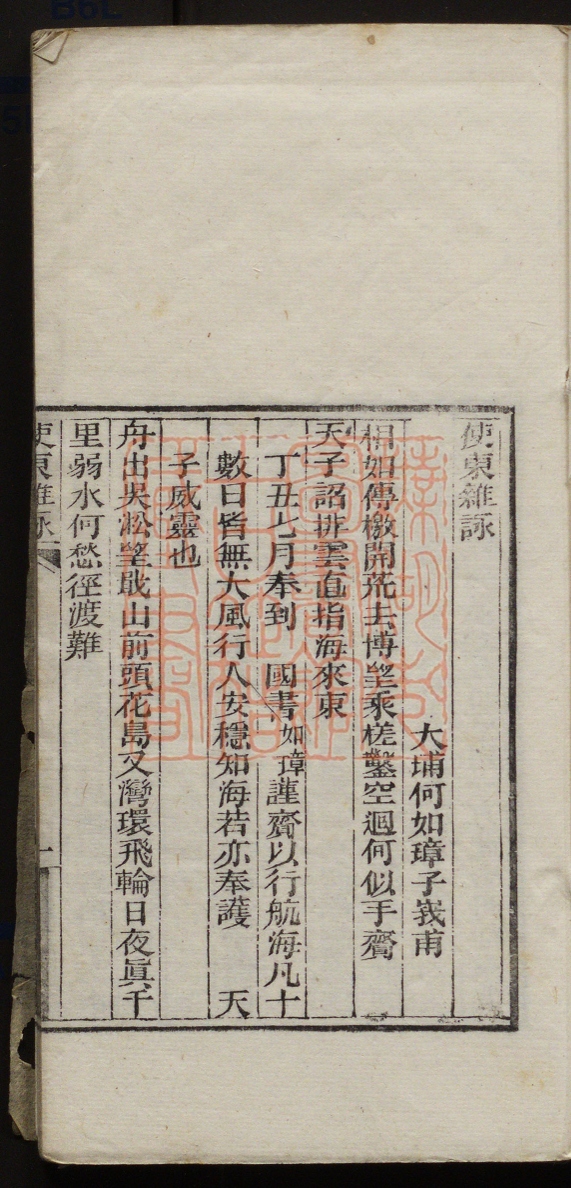 使東雜詠
大埔何如璋子峩甫
相如傳檄開荒去博望乘槎鑿空迴何似手齎
天子詔排雲直指海來東
丁丑七月奉到　國書如璋謹齎以行航海凡十
數日皆無大風行人安穩知海若亦奉護　天
子威靈也
舟出吳淞望戢山前頭花島又灣環飛輪日夜眞千
里弱水何愁徑渡難
使東雜詠
一